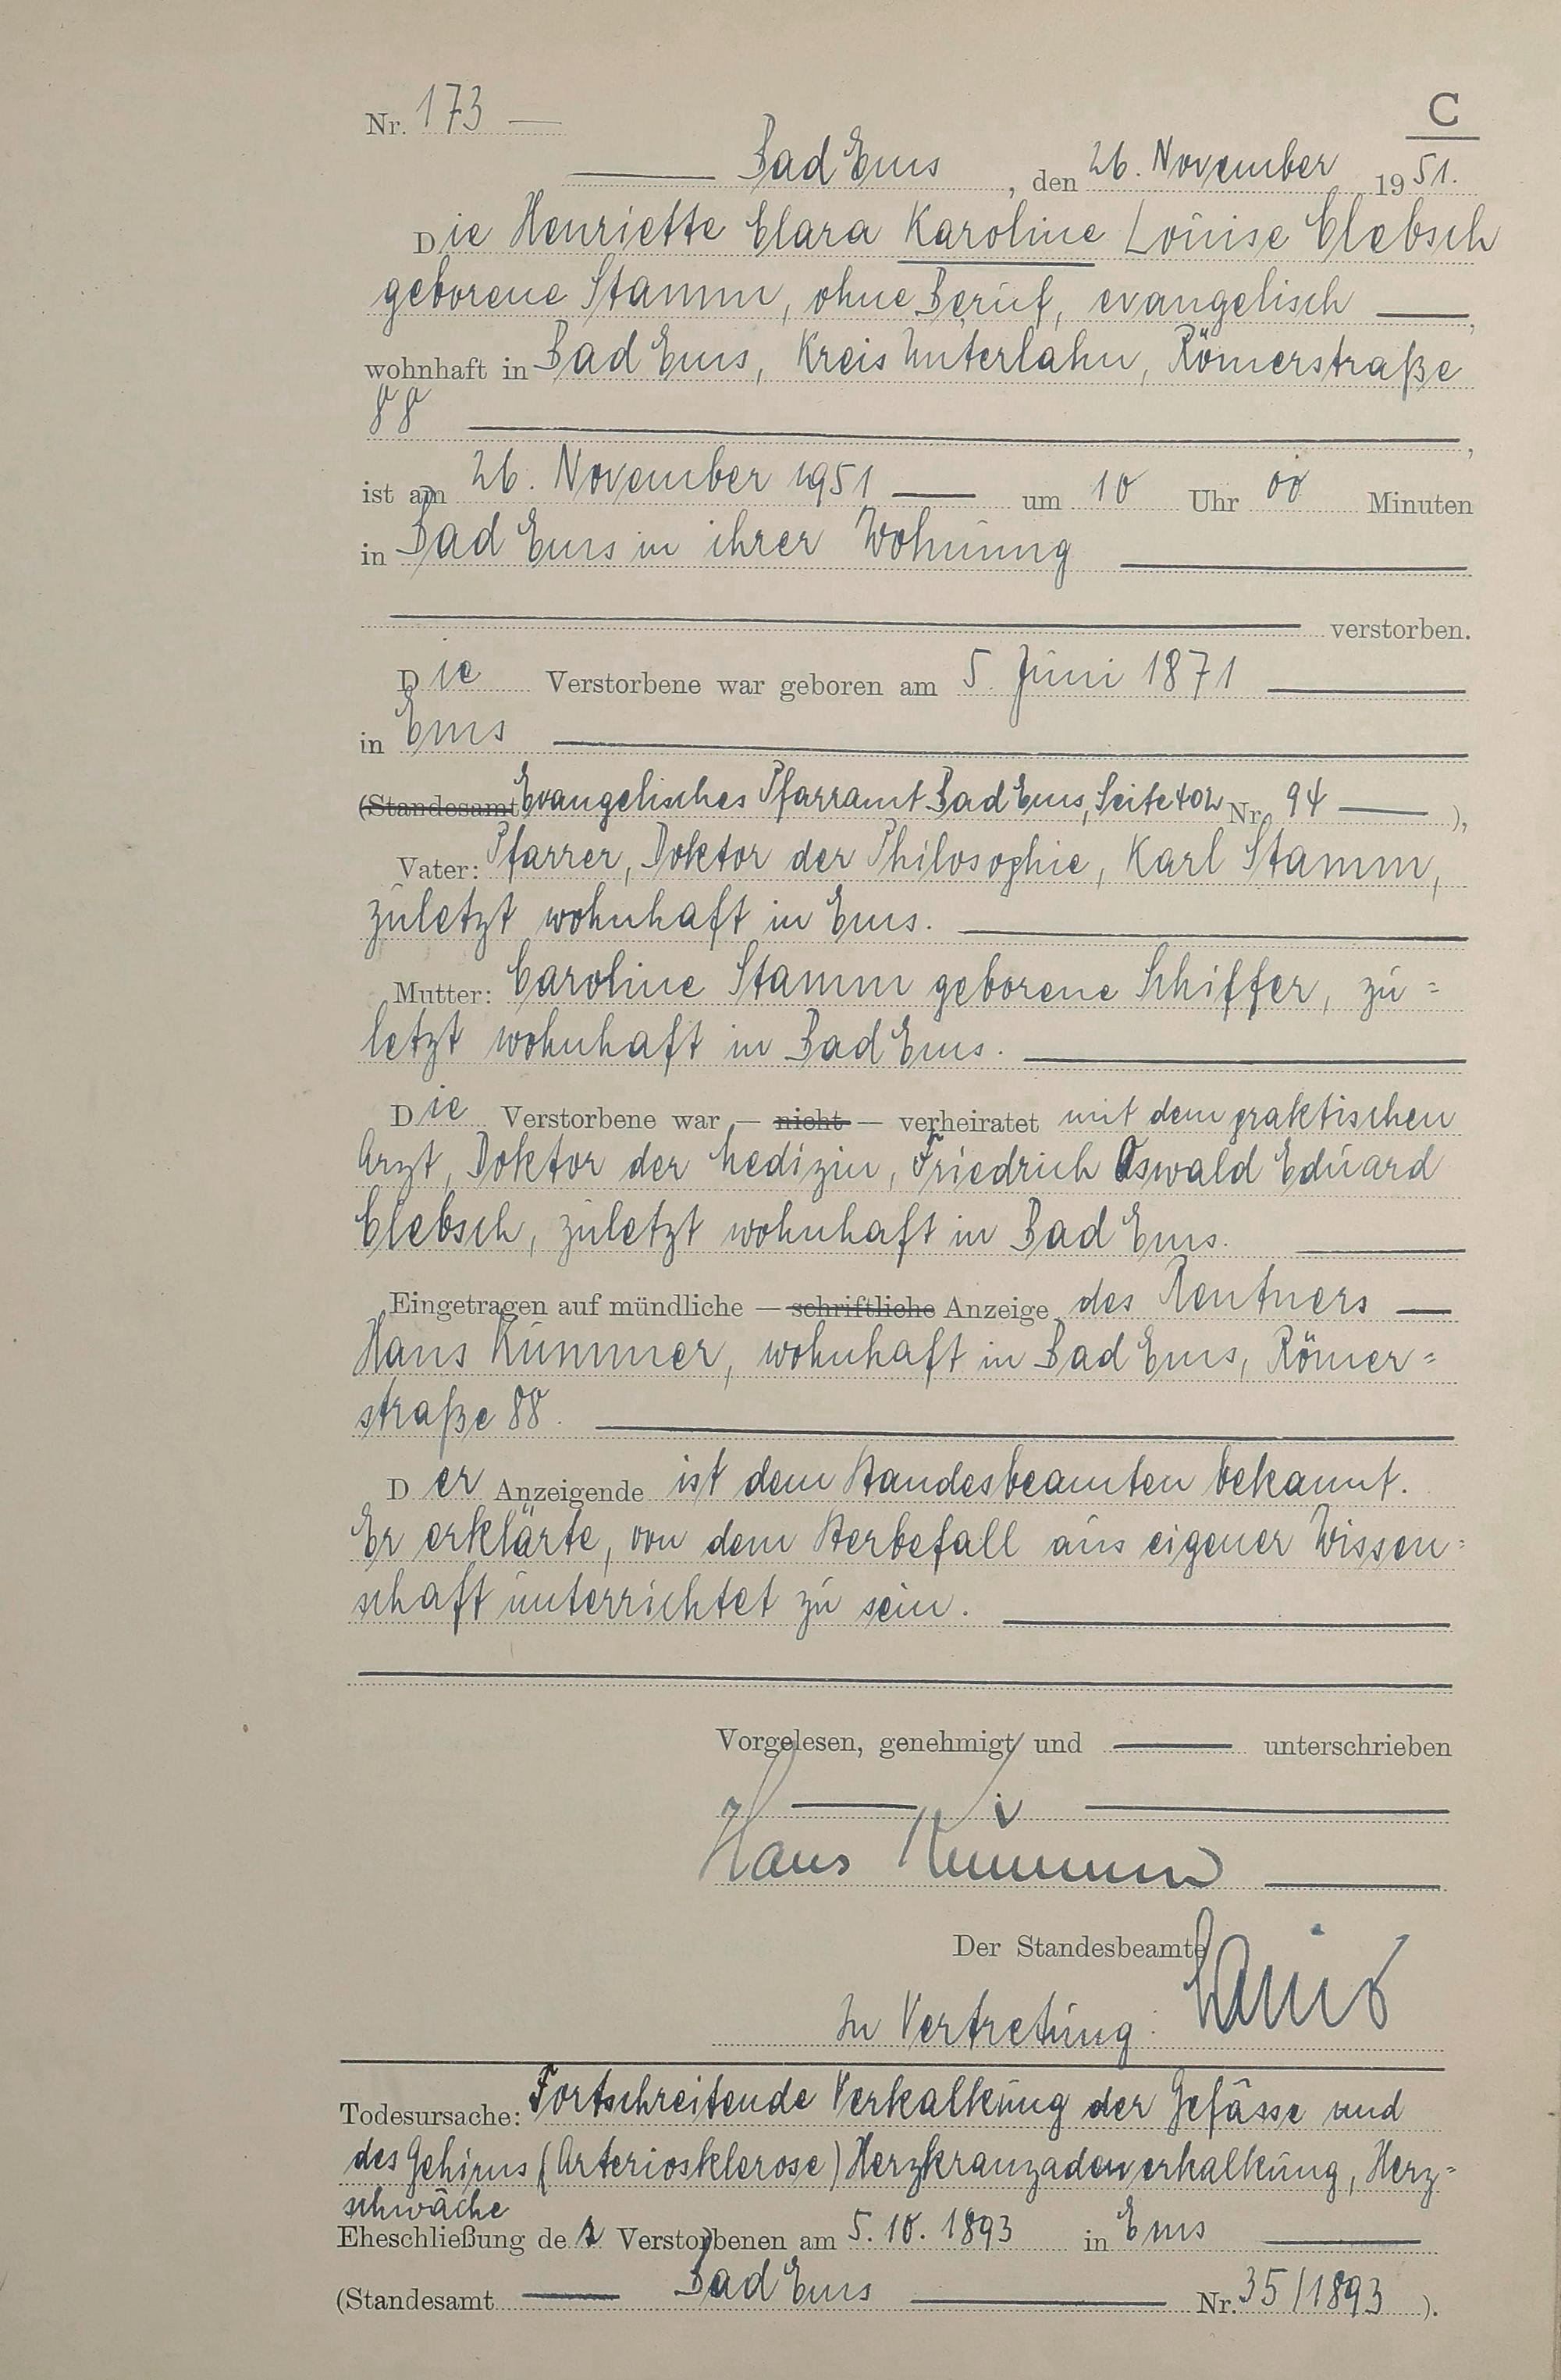 Nr. 173 —
C
Bad Ems, den 26. November 1951.
Die Henriette Clara Karoline Louise Clebsch
geborene Stamm, ohne Beruf, evangelisch —,
wohnhaft in Bad Ems, Kreis Unterlahn, Römerstraße
88 —,
ist am 26. November 1951 — um 10 Uhr 00 Minuten
in Bad Ems in ihrer Wohnung —
— verstorben.
Die Verstorbene war geboren am 5. Juni 1871 —
in Ems —
(Standesamt Evangelisches Pfarramt Bad Ems, Seite 402 Nr. 94 — ),
Vater: Pfarrer, Doktor der Philosophie, Karl Stamm,
zuletzt wohnhaft in Ems. —
Mutter: Caroline Stamm geborene Schiffer, zu=
letzt wohnhaft in Bad Ems. —
Die Verstorbene war — nicht — verheiratet mit dem praktischen
Arzt, Doktor der Medizin, Friedrich Oswald Eduard
Clebsch, zuletzt wohnhaft in Bad Ems. —
Eingetragen auf mündliche — schriftliche Anzeige des Rentners —
Hans Kümmer, wohnhaft in Bad Ems, Römer=
straße 88. —
Der Anzeigende ist dem Standesbeamten bekannt.
Er erklärte, von dem Sterbefall aus eigener Wissen=
schaft unterrichtet zu sein. —
Vorgelesen, genehmigt und — unterschrieben
Hans Kümmer —
Der Standesbeamte
In Vertretung:
Todesursache: Fortschreitende Verkalkung der Gefässe und
des Gehirns (Arteriosklerose) Herzkranzadenverkalkung, Herz=
schwäche
Eheschließung der Verstorbenen am 5.10.1893 in Ems —
(Standesamt — Bad Ems — Nr. 35/1893 ).